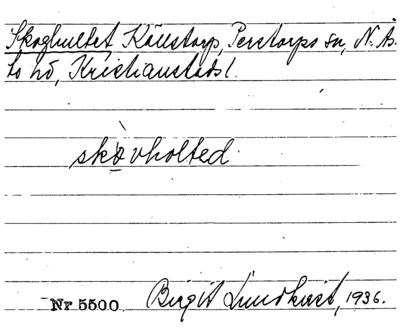 Skoghultet Källstorp, Perstorps sn, N. Ås-
bo hd, Kristianstads l.
skòvholted
Nr 5500 Birgit Lundkvist, 1936.